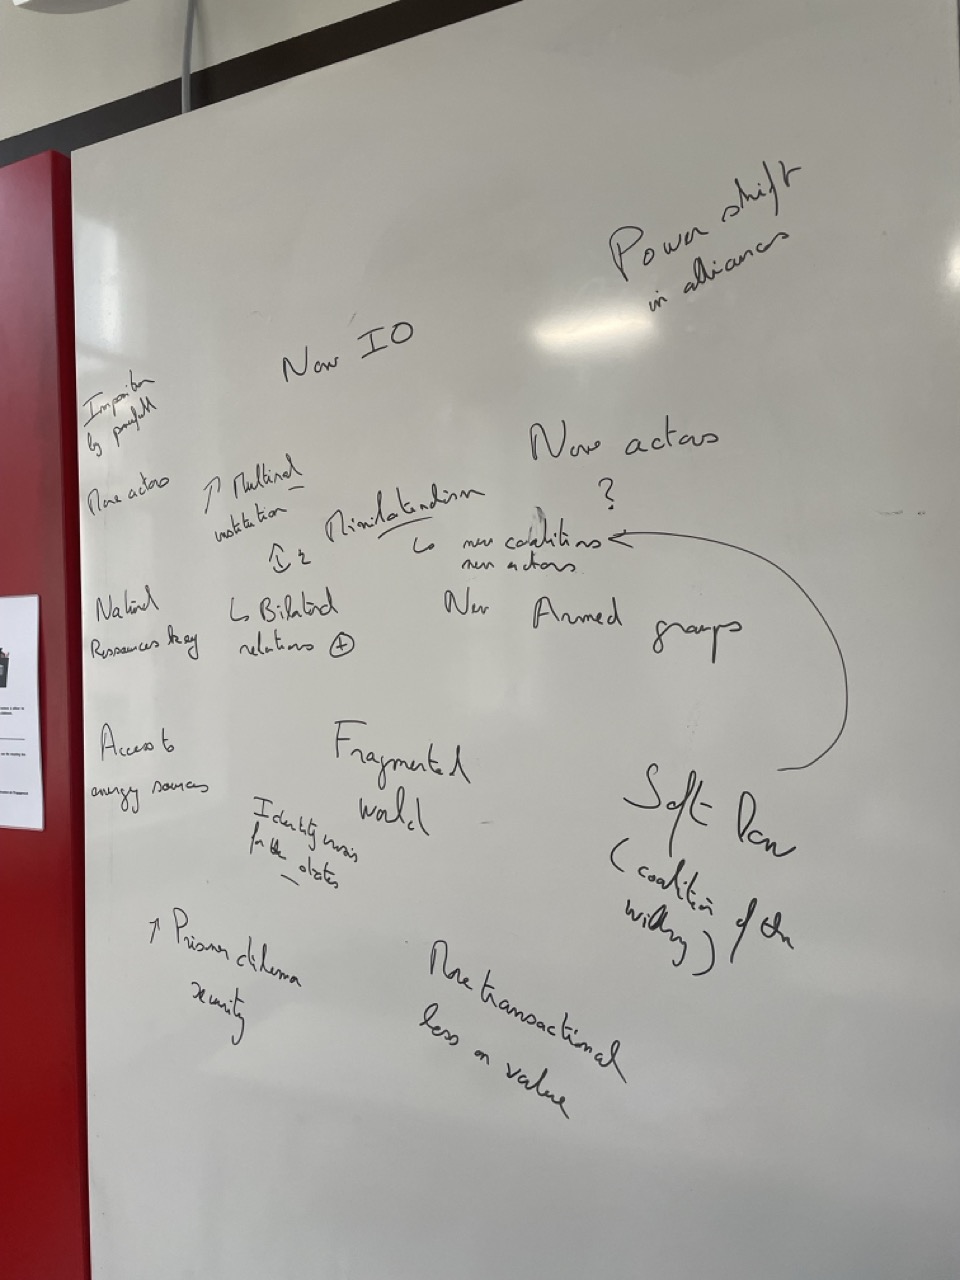 Power shift
in alliances
New IO
Imposition
by powerfull
New actors
?
More actors
↑ Multinal
institution
Minilateralism
↳ new coalitions
new actors
Natural
Ressources key
↳ Bilateral
relations +
New Armed groups
Access to
energy sources
Fragmented
world
Identity crisis
for the states
Soft Pow
(coalition of the
willing)
↑ Prisoner dilemma
security
More transactional
less on value